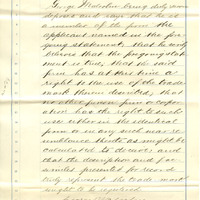 George Malcolm being duly sworn
deposes and says that he is
a member of the firm the
applicant named in the fore
going statement; that he verily
believes that the foregoing statement
ment is true; that the said
firm has at this time a
right to the use of the trade
mark therein described; that
no other person firm or corpor
ation has the right to such
use either in the identical
form or in any such near re
semblance thereto as might be
calculated to deceive; and
that the description and fac
similes presented for record
truly represent the trade mark
sought to be registered